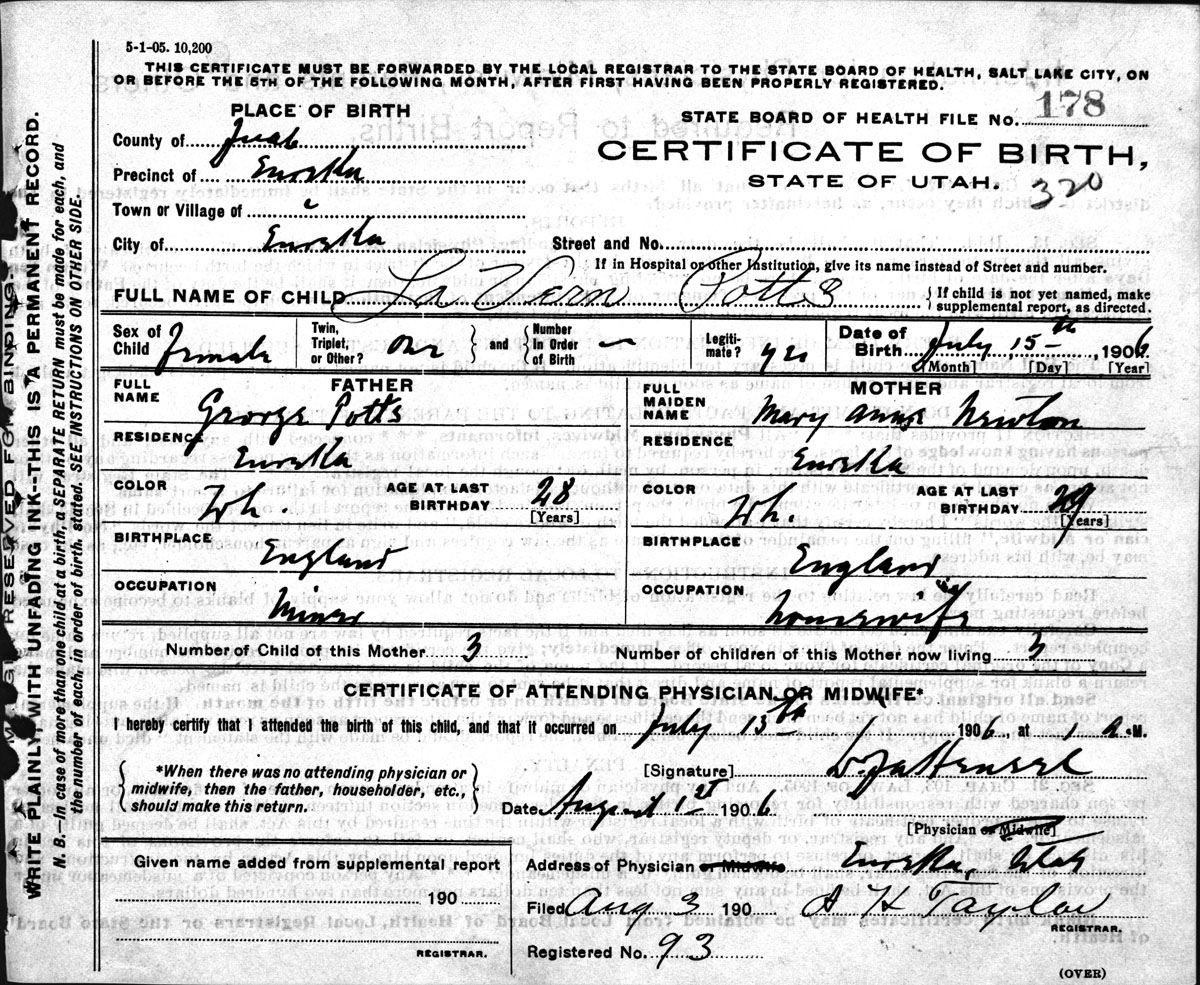 5-1-05. 10,200
THIS CERTIFICATE MUST BE FORWARDED BY THE LOCAL REGISTRAR TO THE STATE BOARD OF HEALTH, SALT LAKE CITY, ON
OR BEFORE THE 5TH OF THE FOLLOWING MONTH, AFTER FIRST HAVING BEEN PROPERLY REGISTERED.
PLACE OF BIRTH
STATE BOARD OF HEALTH FILE No. 178
County of Juab
CERTIFICATE OF BIRTH,
Precinct of Eureka
STATE OF UTAH. 320
Town or Village of
City of Eureka Street and No.
If in Hospital or other Institution, give its name instead of Street and number.
FULL NAME OF CHILD La Vern Potts { If child is not yet named, make supplemental report, as directed.
Sex of Child Female Twin, Triplet, or Other? one } and { Number in Order of Birth — Legitimate? yes Date of Birth July 15th, 1906
[Month] [Day] [Year]
FATHER MOTHER
FULL NAME George Potts FULL MAIDEN NAME Mary Newton
RESIDENCE Eureka RESIDENCE Eureka
COLOR Wh AGE AT LAST BIRTHDAY 28 [Years] COLOR Wh. AGE AT LAST BIRTHDAY 29 [Years]
BIRTHPLACE England BIRTHPLACE England
OCCUPATION Miner OCCUPATION housewife
Number of Child of this Mother 3 Number of children of this Mother now living 3
CERTIFICATE OF ATTENDING PHYSICIAN OR MIDWIFE*
I hereby certify that I attended the birth of this child, and that it occurred on July 15th 1906, at 1 a.M.
{ *When there was no attending physician or midwife, then the father, householder, etc., should make this return. }
[Signature]
Date August 1st 1906
[Physician or Midwife]
Given name added from supplemental report
Address of Physician or Midwife Eureka, Utah
190
Filed Aug 3 190 Taylor
REGISTRAR.
REGISTRAR.
Registered No. 93
(OVER)
MARGIN RESERVED FOR BINDING
WRITE PLAINLY, WITH UNFADING INK--THIS IS A PERMANENT RECORD.
N. B.—In case of more than one child at a birth, a SEPARATE RETURN must be made for each, and
the number of each, in order of birth, stated. SEE INSTRUCTIONS ON OTHER SIDE.